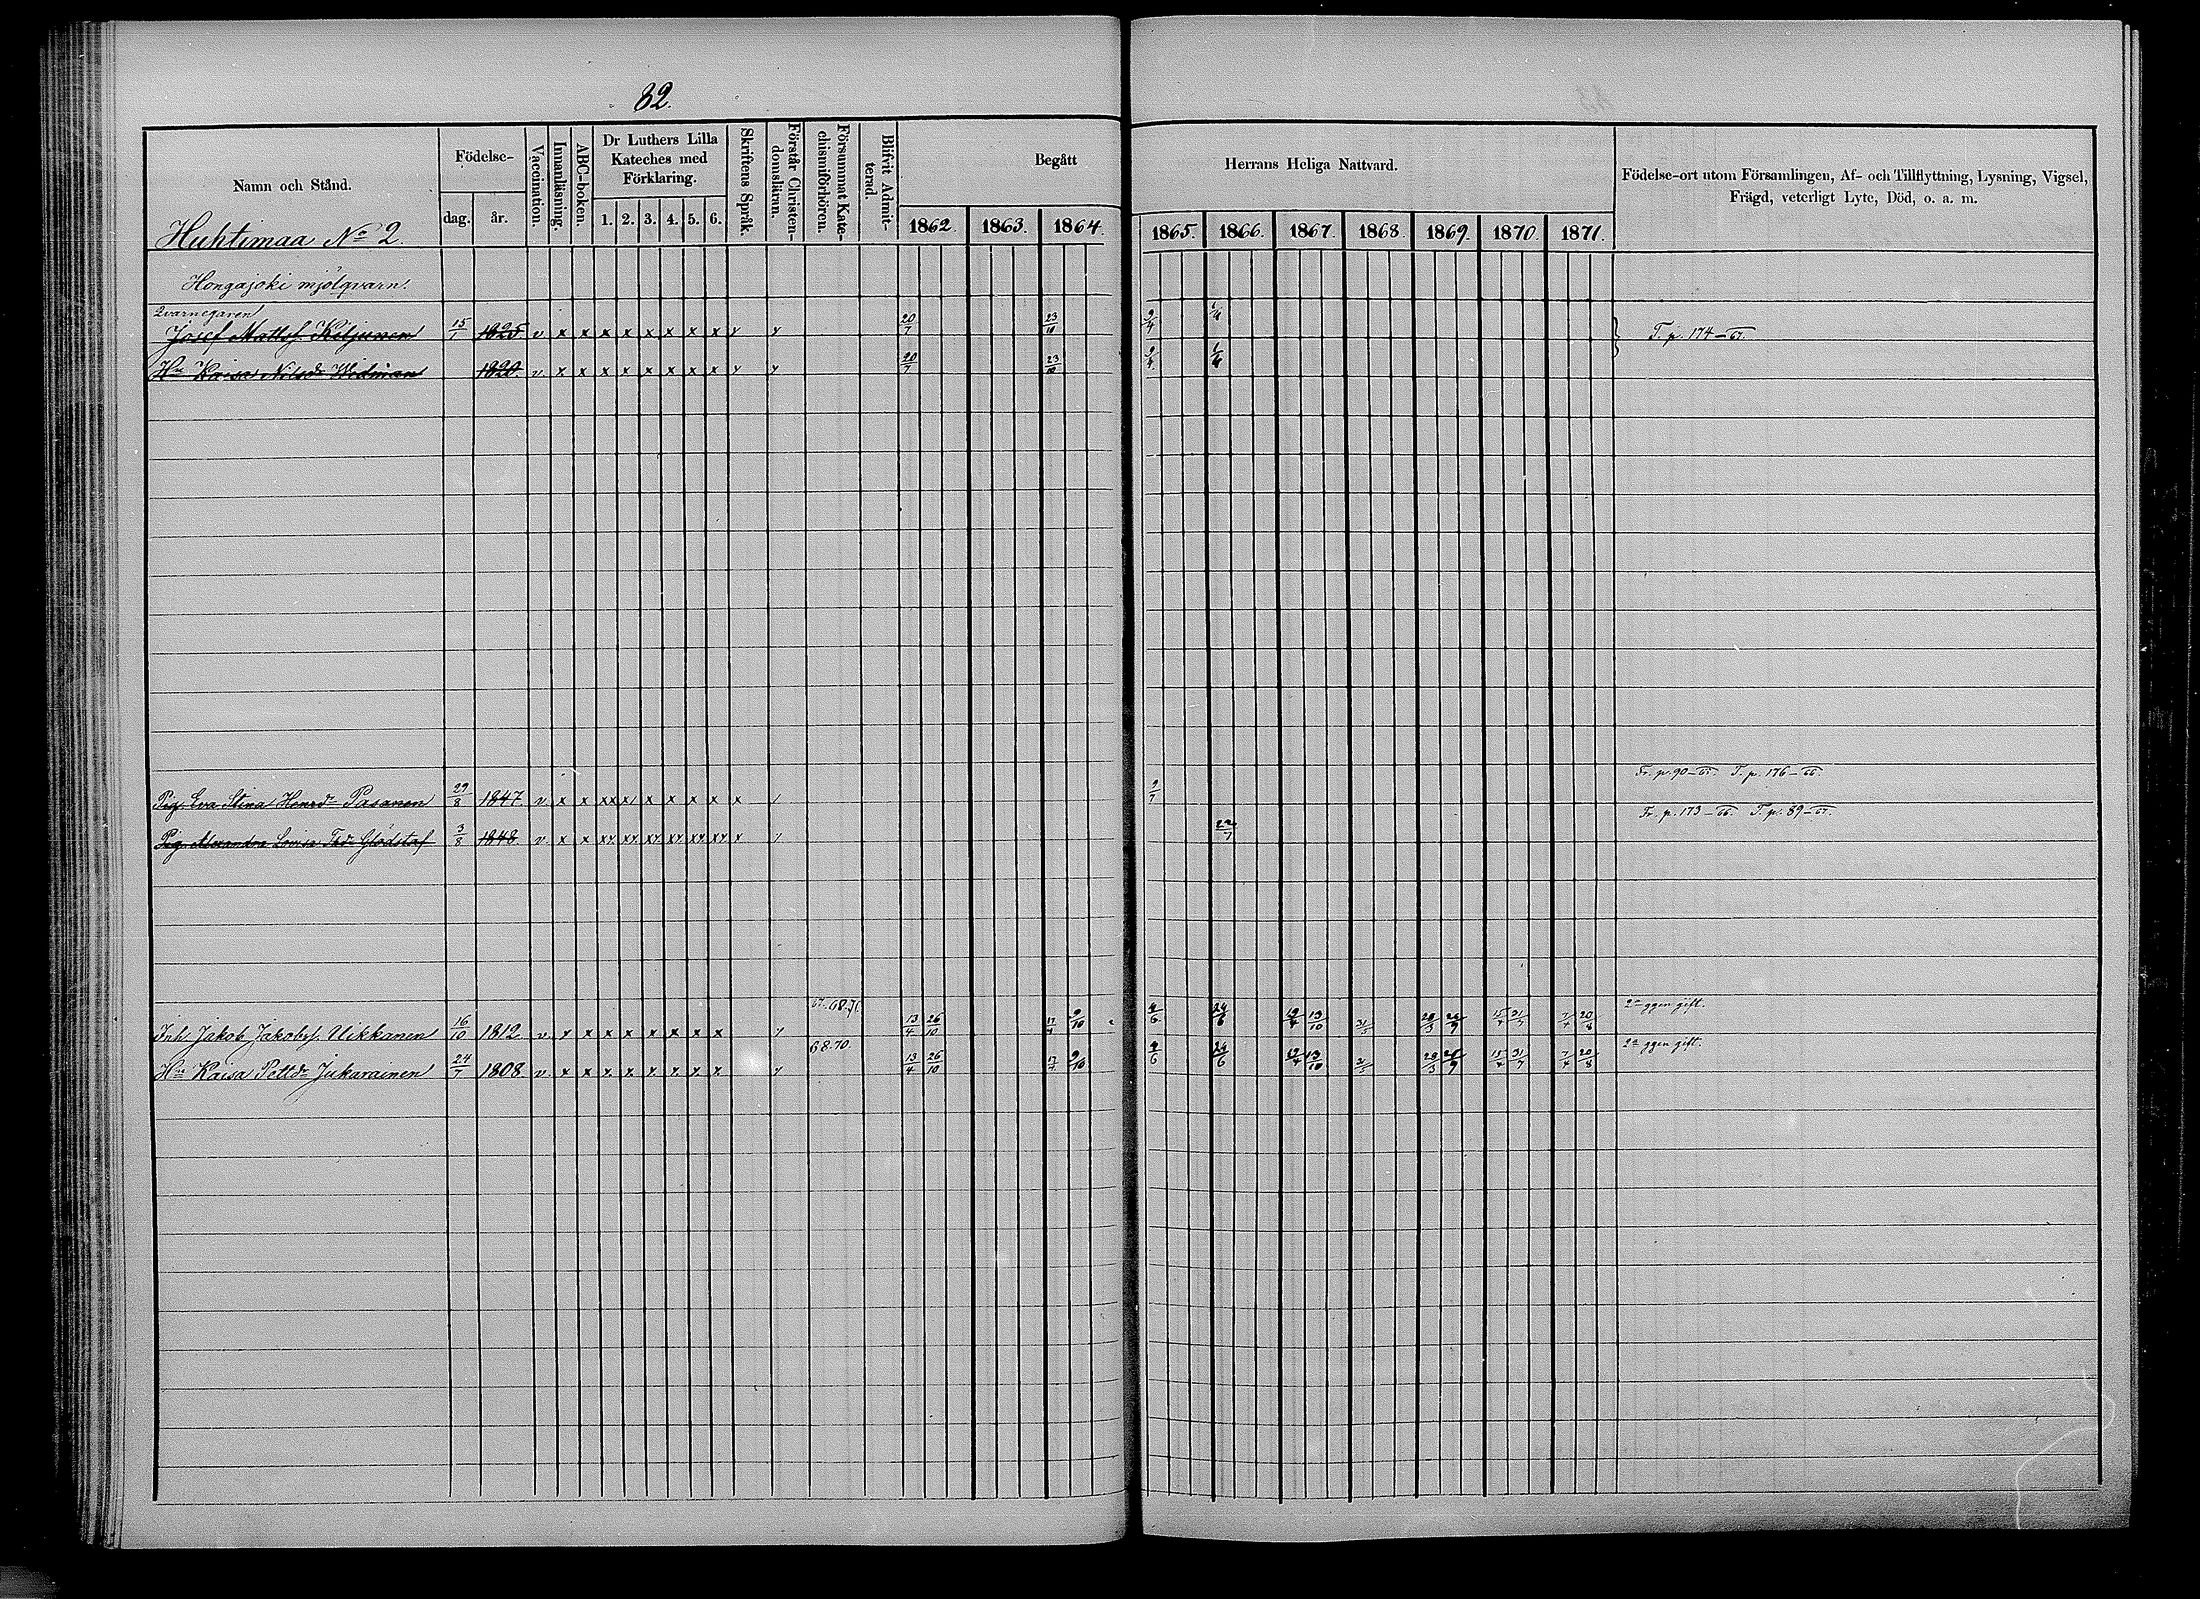 82.
Namn och Stånd.
Födelse-
dag. år.
Vaccination.
Innanläsning.
ABC-boken.
Dr Luthers Lilla
Kateches med
Förklaring.
1. 2. 3. 4. 5. 6.
Skriftens Språk.
Förstår Christen-
domsläran.
Försummat Kate-
chismiförhören.
Blifvit Admit-
terad.
Begått
Herrans Heliga Nattvard.
1862. 1863. 1864. 1865. 1866. 1867. 1868. 1869. 1870. 1871.
Födelse-ort utom Församlingen, Af- och Tillflyttning, Lysning, Vigsel,
Frägd, veterligt Lyte, Död, o. a. m.
Huhtimaa No 2.
Hongajoki mjölqvarn.
Qvarnegaren
Josef Mattsf. Kiljunen 15/7 1825. v x x x x x x x x 20/7 23/10 9/4 T. p. 174-67.
Hu Kaisa Nilsdr Widman 1820. v. x x x x x x x x 20/7 23/10 9/4
Fr. p. 90-65. T. p. 176-66.
Pig. Eva Stina Henrdr Pasanen 29/8 1847. v x x x x x x x 9/7
Fr. p. 173-66. T. p. 89-67.
Pig. Alexandra Lovisa Thdr Glödstaf 3/8 1848. v. x x 22/7
67.68.71. 2a ggen gift.
Inh. Jakob Jakobsf. Mikkanen 16/10 1812. v. x x x x x x x x 13/4 26/10 17/7 9/10 4/6 24/6 19/4 13/10 31/5 28/3 26/9 15/4 31/7 7/4 20/8
68.70. 2a ggen gift.
Hu Kaisa Pettdr Jukarainen 24/7 1808. v. x x x x x x x x 13/4 26/10 17/7 9/10 4/6 24/6 19/4 13/10 31/5 28/3 26/9 15/4 31/7 7/4 20/8